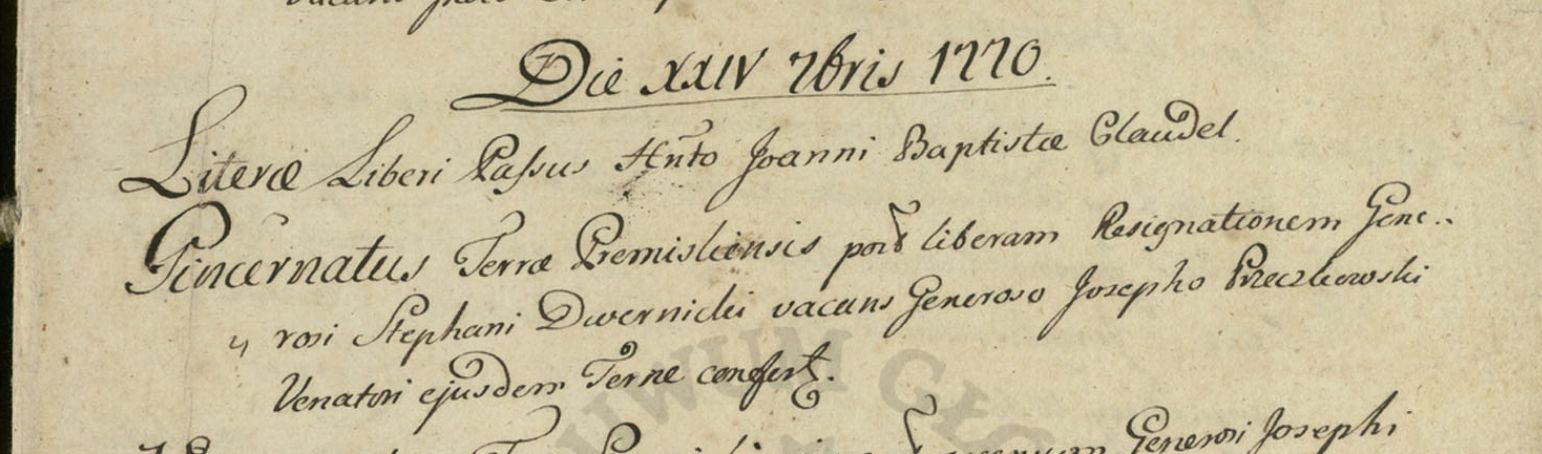 Die XXIV 7bris 1770.
Literæ Liberi Passus Hnto Joanni Baptistæ Claudel.
Pincernatus Terræ Premisliensis post liberam Resignationem Gene..
„ rosi Stephani Dwernicki vacans Generoso Josepho Przeczkowski
Venatori ejusdem Terræ confert.
Generosi Josephi